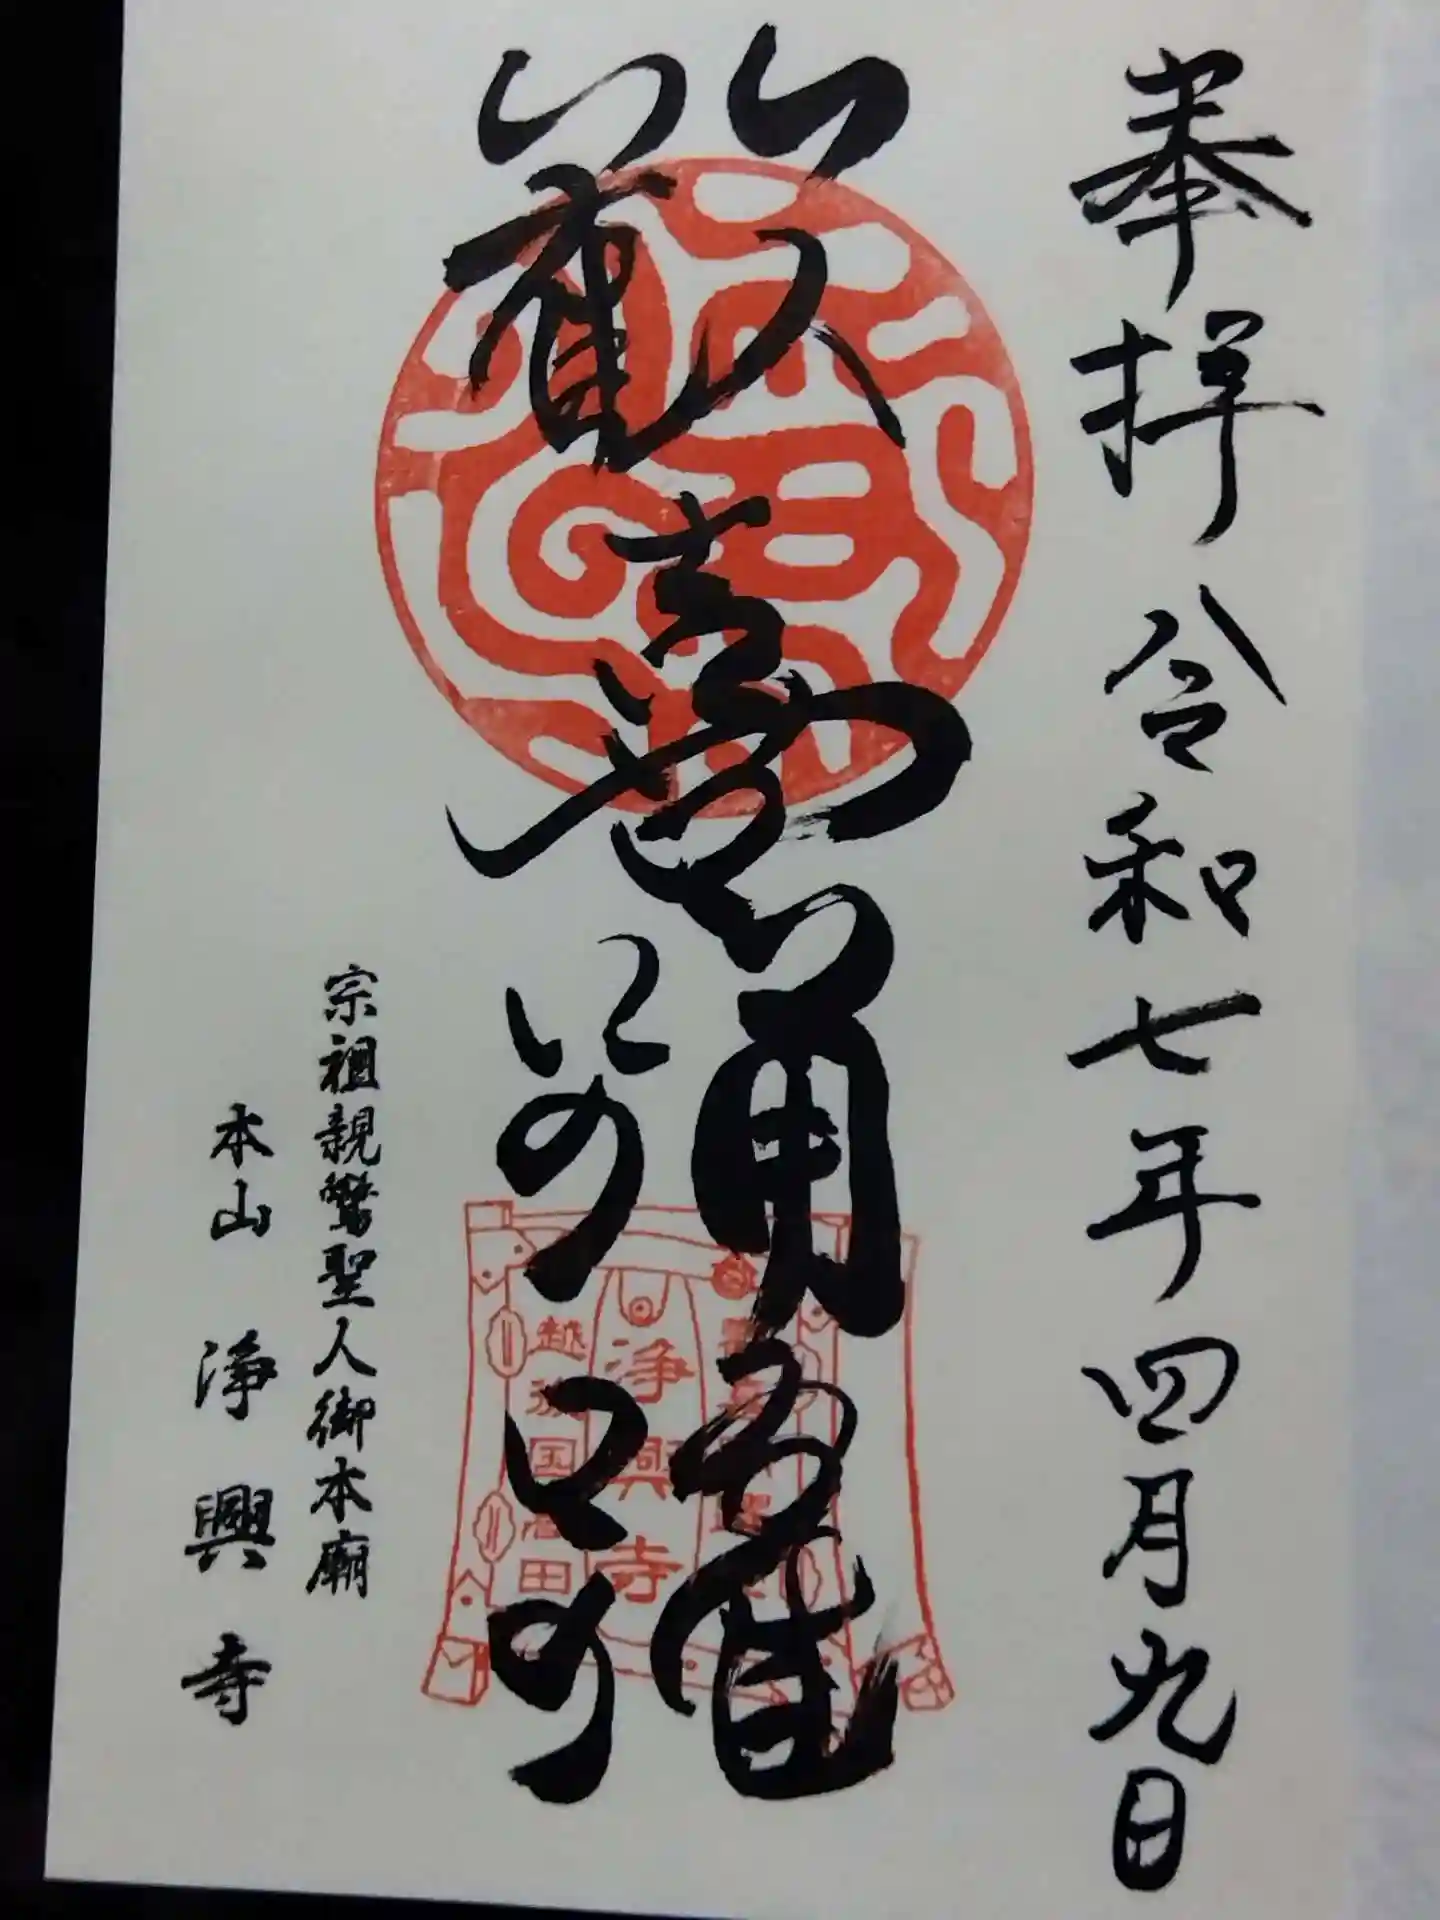 奉拝 令和七年四月九日
歓喜踊躍
浄興寺
宗祖親鸞聖人御本廟
本山 浄興寺